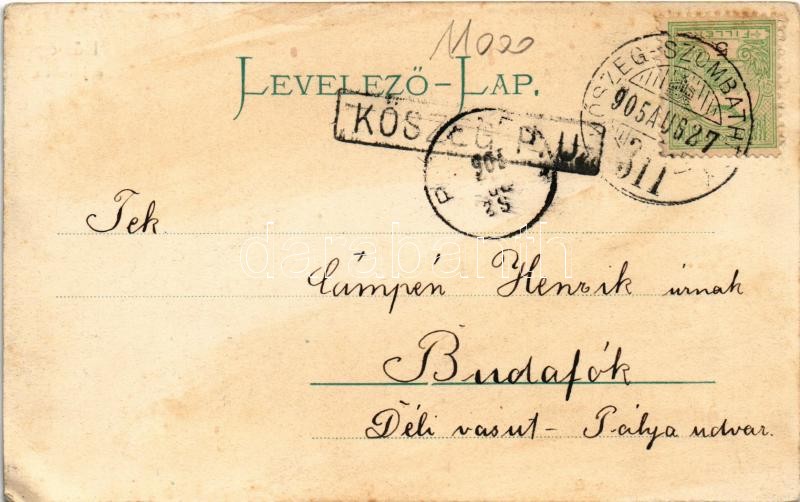 11020
LEVELEZŐ-LAP.
FILLÉR
KŐSZEG-SZOMBATHELY
905 AUG 27
911
KŐSZEG P.U.
905
28
Tek
Cámpén Henrik úrnak
Budafók
Déli vasut - Pálya udvar.
darabanth